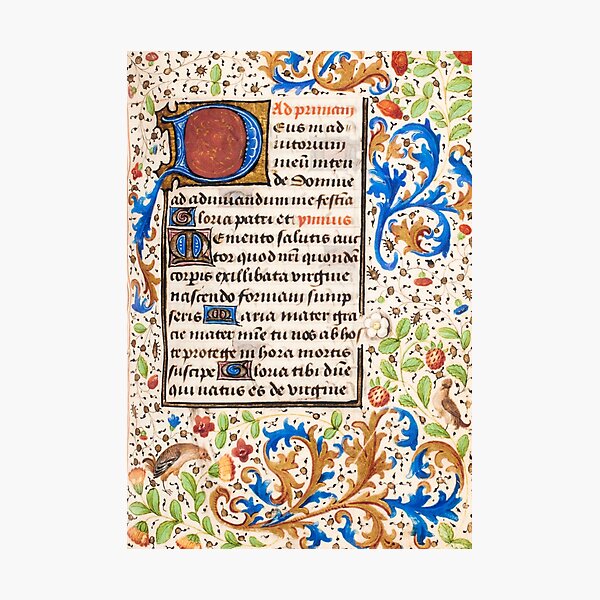 Ad primam
Deus in ad
iutorium
meum inten
de Domine
ad adiuvandum me festia
Gloria patri et ymnus
Memento salutis auc
tor quod nr̄i quondā
corpis ex illibata virgine
nascendo formam sump
seris Maria mater gra
cie mater mīe tu nos ab ho
te protege in hora mortis
suscipe Gloria tibi dn̄e
qui natus es de virgine